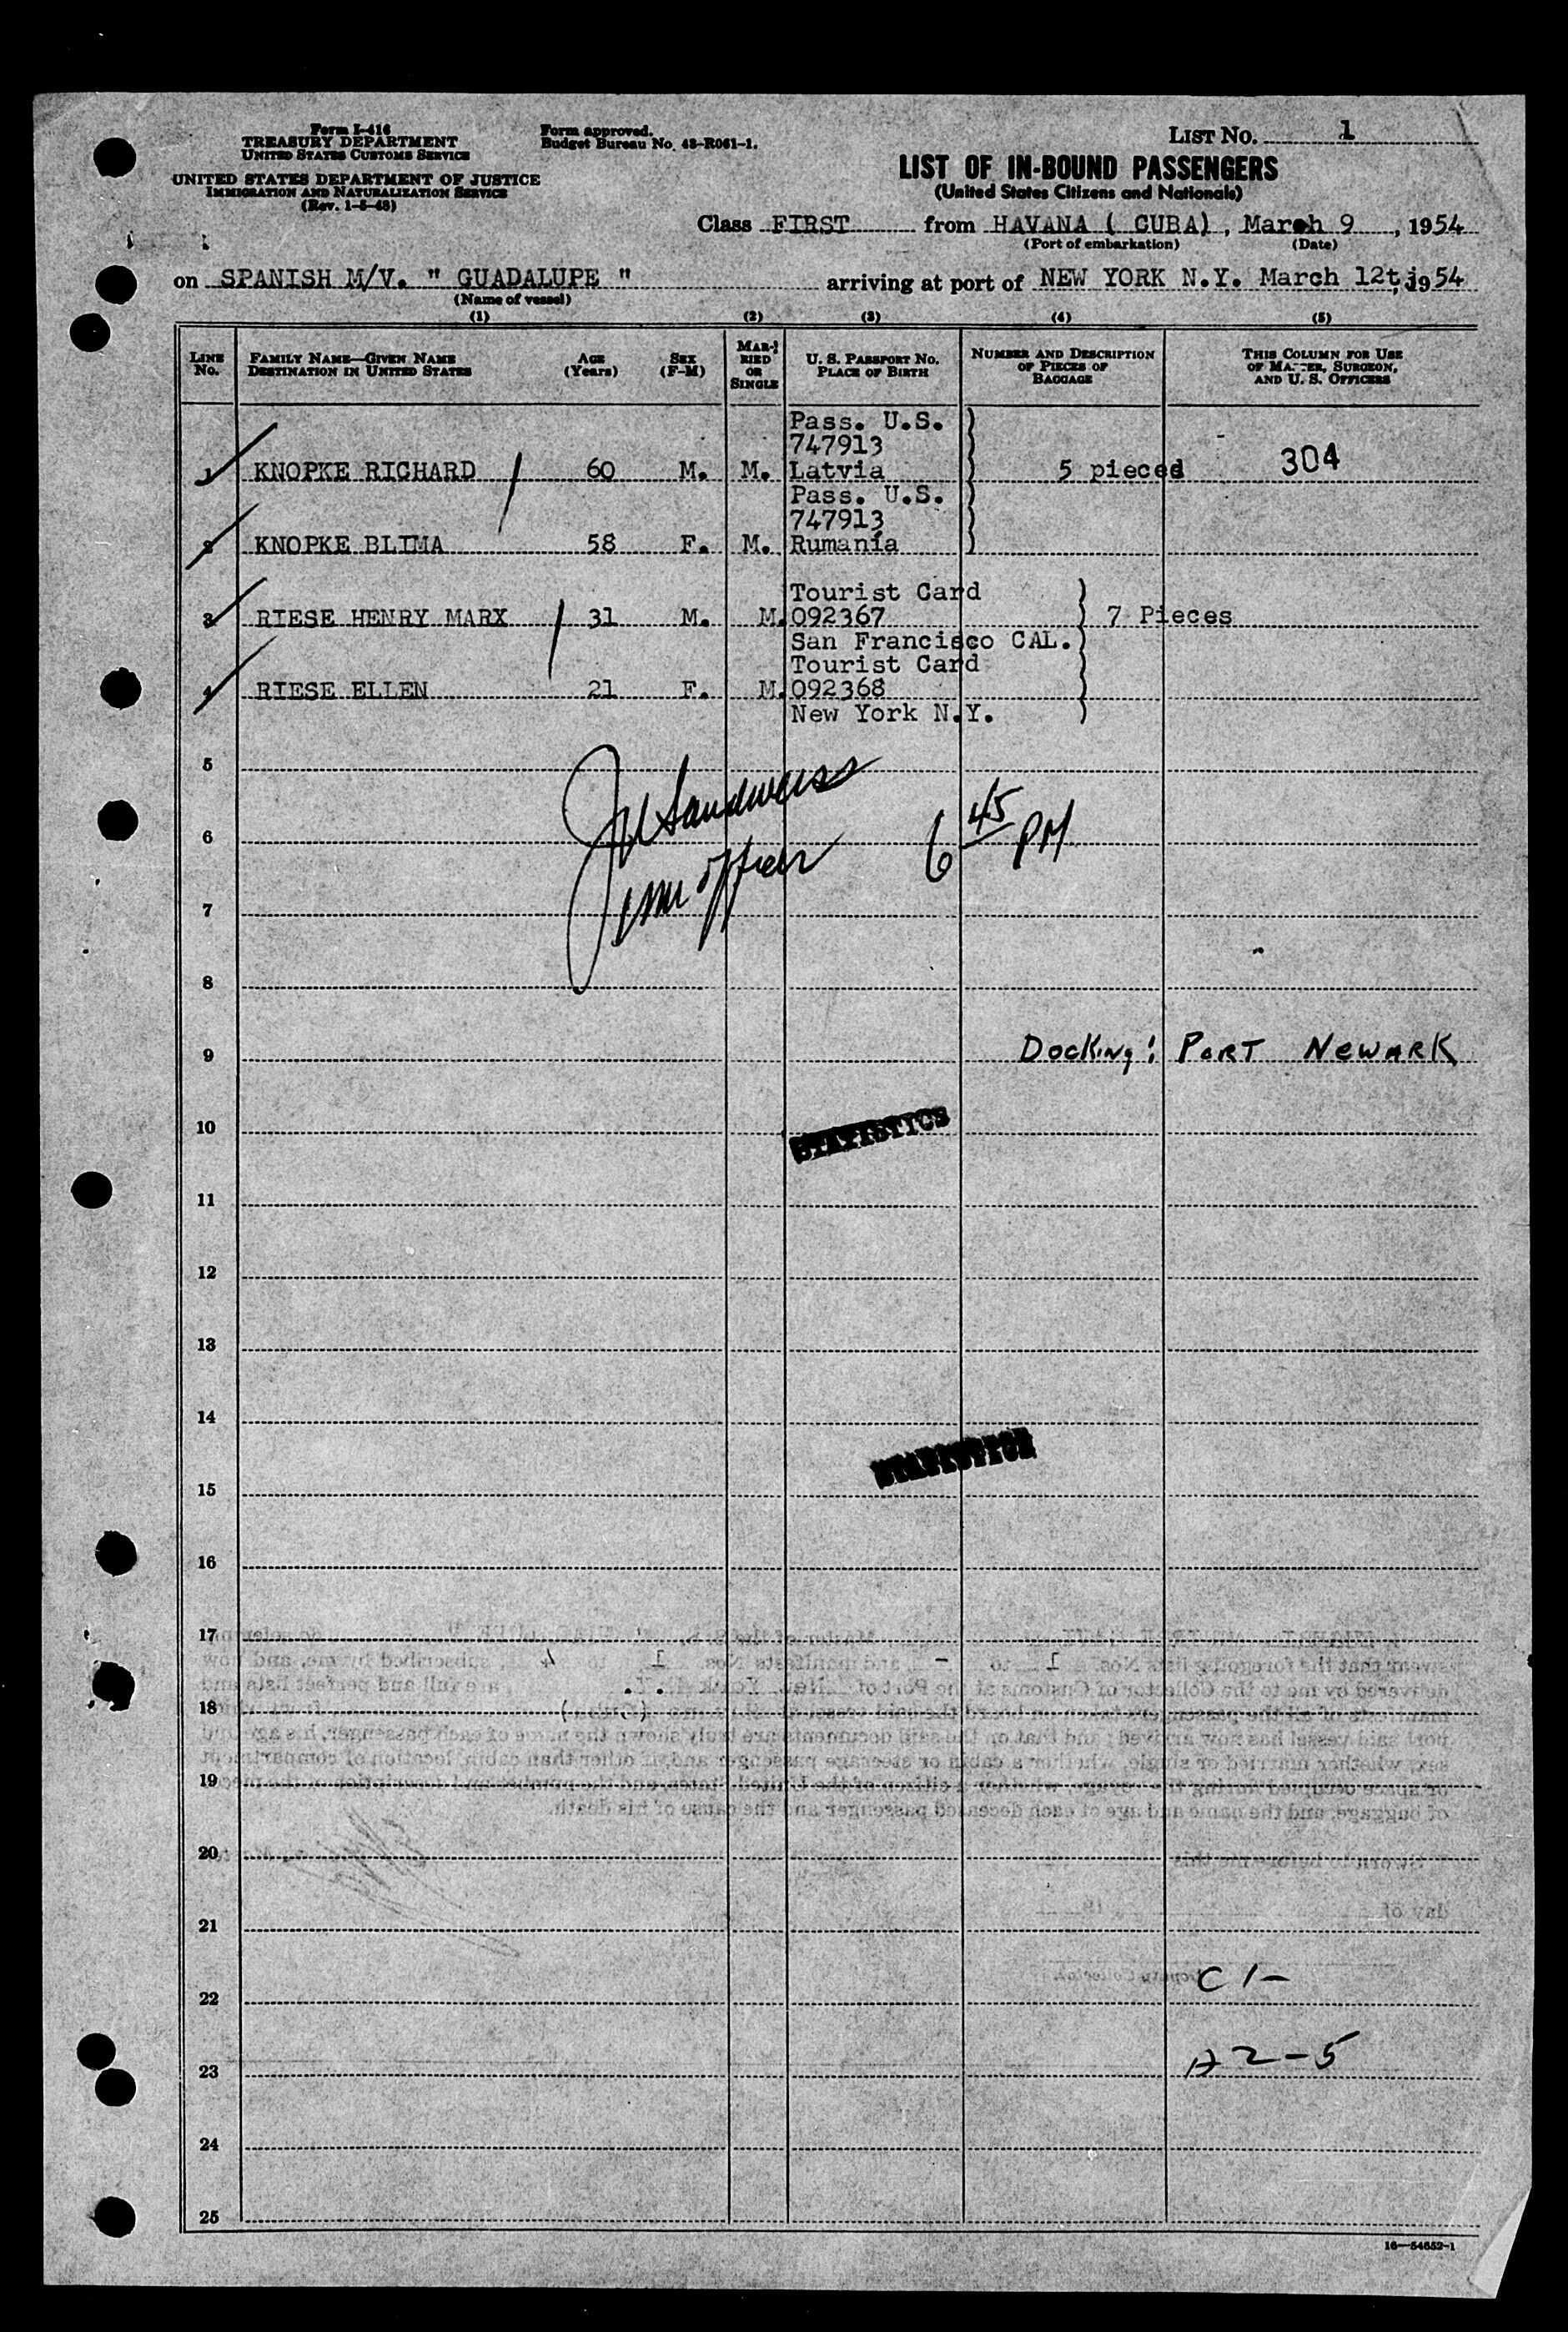 Form I-416
TREASURY DEPARTMENT
UNITED STATES CUSTOMS SERVICE
UNITED STATES DEPARTMENT OF JUSTICE
IMMIGRATION AND NATURALIZATION SERVICE
(Rev. 1-5-48)
Form approved.
Budget Bureau No. 43-R061-1.
LIST NO. 1
LIST OF IN-BOUND PASSENGERS
(United States Citizens and Nationals)
Class FIRST from HAVANA ( CUBA), March 9, 1954
(Port of embarkation) (Date)
on SPANISH M/V. " GUADALUPE " arriving at port of NEW YORK N.Y. March 12t, 1954
(Name of vessel)
(1) (2) (3) (4) (5)
LINE NO.
FAMILY NAME—GIVEN NAME
DESTINATION IN UNITED STATES
AGE (Years)
SEX (F-M)
MARRIED OR SINGLE
U. S. PASSPORT NO.
PLACE OF BIRTH
NUMBER AND DESCRIPTION OF PIECES OF BAGGAGE
THIS COLUMN FOR USE OF MASTER, SURGEON, AND U. S. OFFICERS
Pass. U.S.
747913
1 KNOPKE RICHARD 60 M. M. Latvia 5 pieced 304
Pass. U.S.
747913
2 KNOPKE BLIMA 58 F. M. Rumania
Tourist Card
3 RIESE HENRY MARX 31 M. M. 092367 7 Pieces
San Francisco CAL.
Tourist Card
4 RIESE ELLEN 21 F. M. 092368
New York N.Y.
5
Sandweiss
6 6 45 PM
Imm officer
7
8
9 Docking: PORT NEWARK
10 STATISTICS
11
12
13
14
STATISTICS
15
16
17
18
19
20
21
C 1-
22
A 2-5
23
24
25
16—54652-1